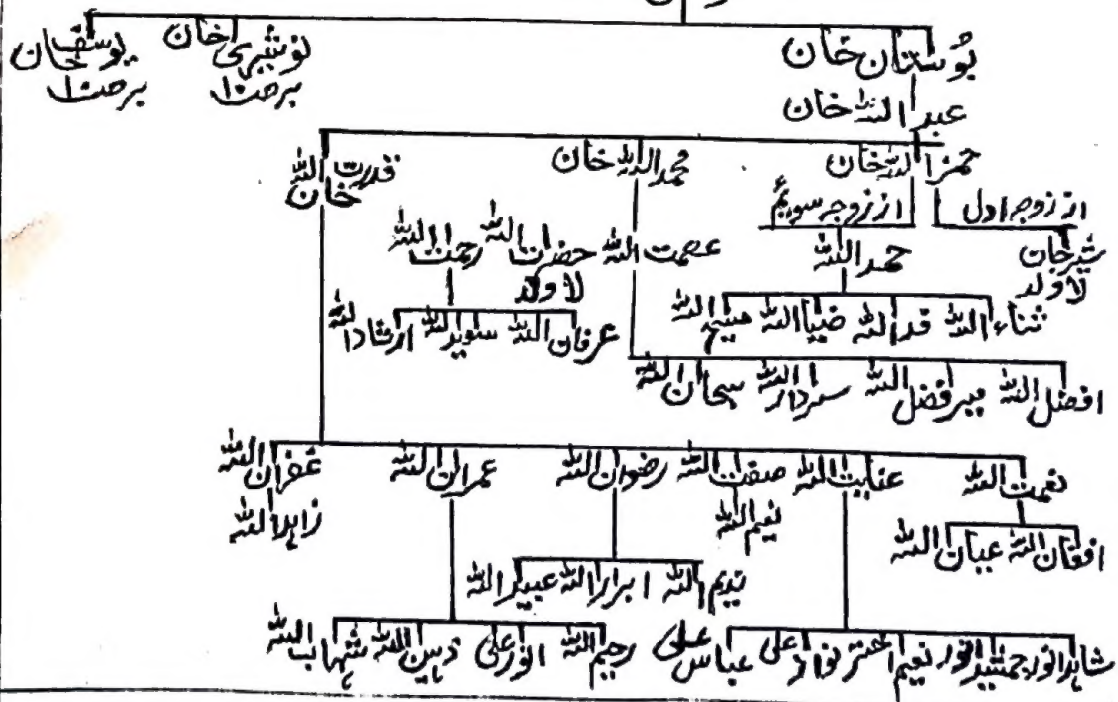 بُوستان خان نوشیری خان یوسف خان
برصـ۱۰ برصـ۱۰
عبداللہ خان
حمزاللہ خان محمداللہ خان قدرت اللہ خان
از زوجہ اول از زوجہ سویم
شیرخان لاولد حمداللہ عصمت اللہ حضرت اللہ لاولد رحمت اللہ
ثناءاللہ قداللہ ضیااللہ سمیع اللہ
عرفان اللہ تنویراللہ ارشاداللہ
افضل اللہ میرفضل اللہ سرداراللہ سبحان اللہ
نعمت اللہ عنایت اللہ صفت اللہ رضوان اللہ عمران اللہ غفران اللہ
افغان اللہ عیان اللہ نعیم اللہ زاہداللہ
ندیم اللہ ابراراللہ عبیداللہ
شاہدانور جمشیدانور نعیم اختر نواز علی عباس علی رحیم اللہ انورعلی ذہین اللہ شہاب اللہ